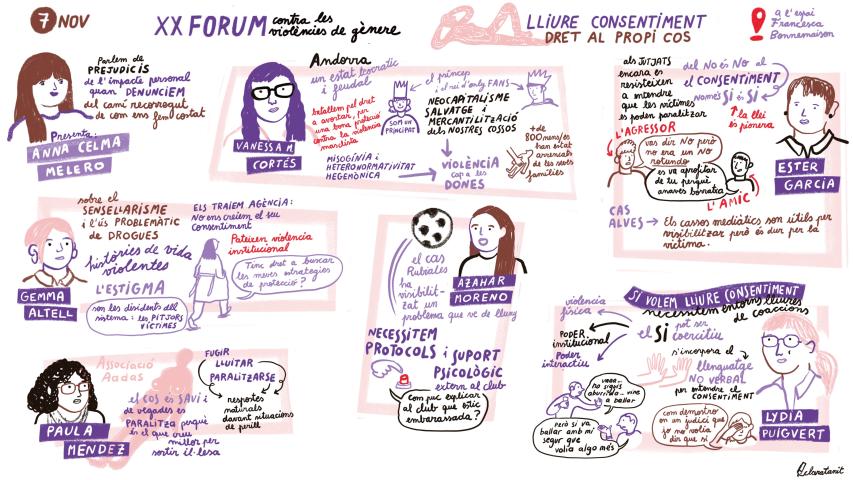 7 NOV
XX FORUM contra les
violències de gènere
LLIURE CONSENTIMENT
DRET AL PROPI COS
a l'espai
Francesca
Bonnemaison
Parlem de
PREJUDICIS
de l'impacte personal
quan DENUNCIEM
del camí recorregut
de com ens fem costat
Presenta:
ANNA CELMA
MELERO
Andorra
un estat teocràtic
i feudal
batallem pel dret
a avortar, per
una bona protecció
contra la violència
masclista
MISOGÍNIA i
HETERONORMATIVITAT
HEGEMÒNICA
VANESSA M.
CORTÉS
SOM UN
PRINCIPAT
el príncep
i el rei d'only FANS
NEOCAPITALISME
SALVATGE i
MERCANTILITZACIÓ
dels NOSTRES COSSOS
VIOLÈNCIA
cap a les
DONES
+ de
800 nens/es
han estat
arrencats
de les seves
famílies
als JUTJATS
encara es
resisteixen
a entendre
que les víctimes
es poden paralitzar
del No és No al
el CONSENTIMENT
Només SI és SI
la llei
és pionera
L'AGRESSOR
vas dir No però
no era un NO
rotundo
es va aprofitar
de tu perquè
anaves borratxa
L'AMIC
ESTER
GARCÍA
CAS
ALVES → Els cassos mediàtics són útils per
visibilitzar però és dur per la
víctima.
sobre el
SENSELLARISME
i l'ús PROBLEMÀTIC
de DROGUES
històries de vida
violentes
L'ESTIGMA
són les dissidents del
sistema: les PITJORS
VÍCTIMES
GEMMA
ALTELL
ELS TRAIEM AGÈNCIA:
No ens creiem el seu
consentiment
Pateixen violència
institucional
Tinc dret a buscar
les meves estratègies
de protecció?
el cas
Rubiales
ha
visibilit-
zat un
problema que ve de lluny
AZAHAR
MORENO
NECESSITEM
PROTOCOLS i SUPORT
PSICOLÒGIC
extern al club
Com puc explicar
al club que estic
embarassada?
Associació
Aadas
el COS és SAVI i
de vegades es
PARALITZA perquè
és el que creu
millor per
sortir il·lesa
FUGIR
LLUITAR
PARALITZARSE
respostes
naturals
davant situacions
de perill
PAULA
MENDEZ
SI VOLEM LLIURE CONSENTIMENT
necessitem entorns lliures
de coaccions
violència
física
PODER
institucional
Poder
interactiu
el SI pot ser
coercitiu
s'incorpora el
llenguatge
NO VERBAL
per entendre el
CONSENTIMENT
vaaa..
no siguis
aburrida.. vine
a ballar
Però si va
ballar amb mi
segur que
volia algo més
Com demostro
en un judici que
jo no volia
dir que sí
LYDIA
PUIGVERT
@claratanit